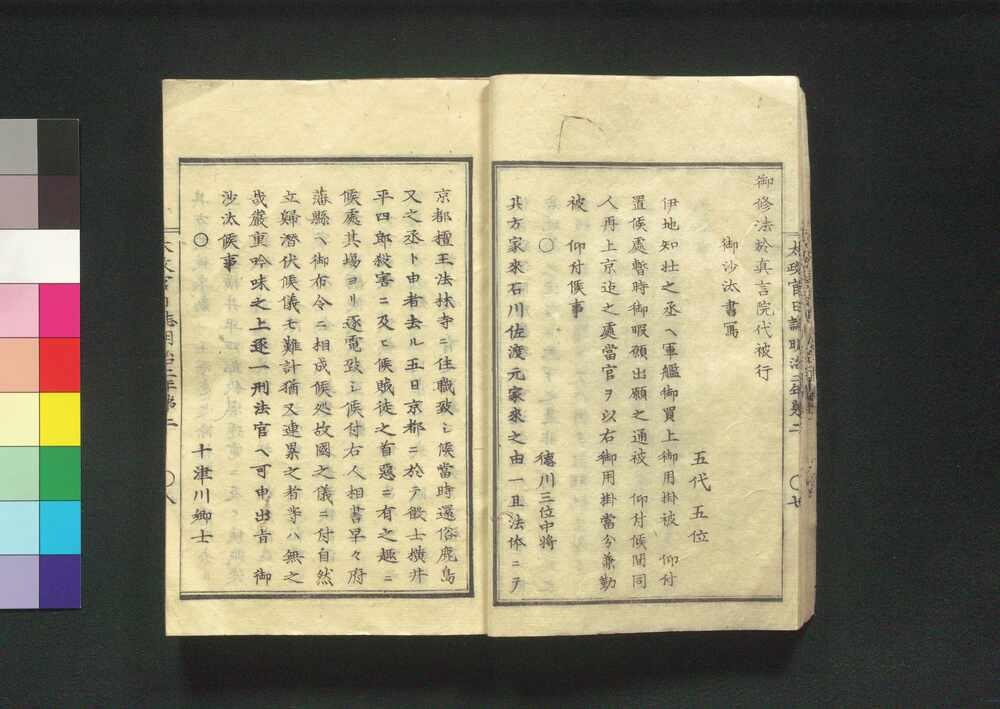 太政官日誌明治二年第二
〇七
御修法於真言院代被行
御沙汰書寫
五代五位
伊地知壮之丞ヘ軍艦御買上御用掛被　仰付
置候處暫時御暇願出願之通被　仰付候間同
人再上京迄之處當官ヲ以右御用掛當分兼勤
被　仰付候事
〇　徳川三位中将
其方家來石川佐渡元家來之由一旦法体ニテ
京都檀王法林寺ニ住職致シ候當時還俗鹿島
又之丞ト申者去ル五日京都ニ於テ徴士横井
平四郎殺害ニ及ヒ候賊徒之首惡ニ有之趣ニ
候處其場ヨリ逐電致シ候付右人相書早々府
藩縣ヘ御布令ニ相成候処故國之儀ニ付自然
立歸潜伏候儀モ難計猶又連累之者等ハ無之
哉嚴重吟味之上逐一刑法官ヘ可申出旨　御
沙汰候事
〇　十津川郷士
太政官日誌明治二年第二
〇八